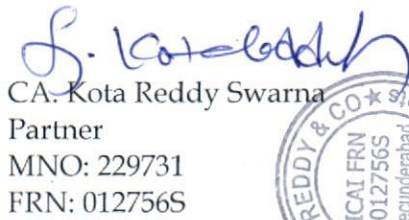 CA. Kota Reddy Swarna
Partner
MNO: 229731
FRN: 012756S
REDDY & CO ★
ICAI FRN
012756S